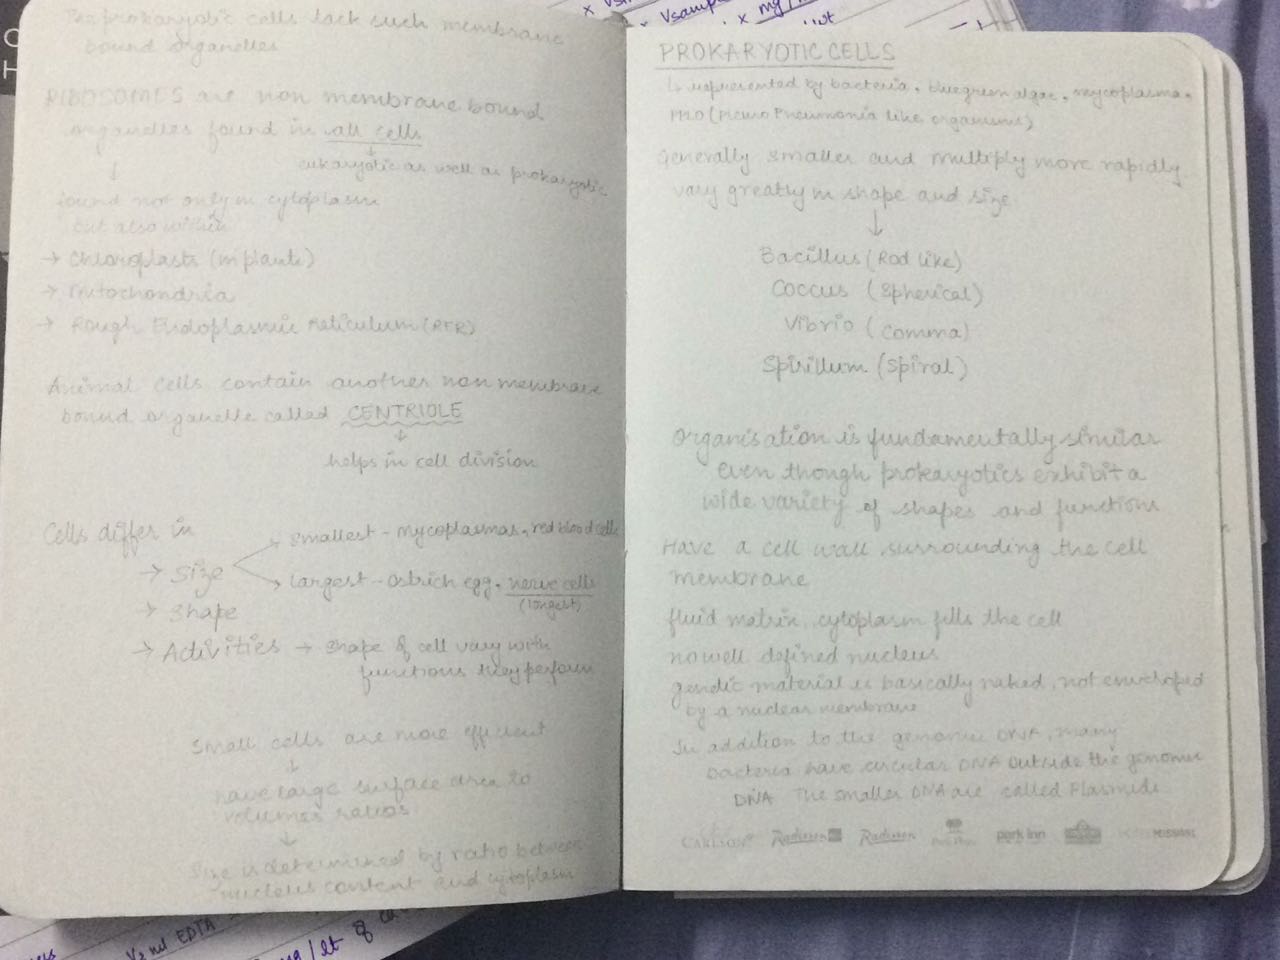 The prokaryotic cells lack such membrane
bound organelles
RIBOSOMES are non membrane bound
organelles found in all cells
eukaryotic as well as prokaryotic
found not only in cytoplasm
but also within
→ Chloroplasts (in plants)
→ Mitochondria
→ Rough Endoplasmic Reticulum (RER)
Animal cells contain another non membrane
bound organelle called CENTRIOLE
helps in cell division
Cells differ in
→ Size
→ smallest - mycoplasmas, red blood cells
→ largest - ostrich egg, nerve cells
(longest)
→ Shape
→ Activities → shape of cell vary with
functions they perform
Small cells are more efficient
have large surface area to
volumes ratios
Size is determined by ratio between
nucleus content and cytoplasm
PROKARYOTIC CELLS
↳ represented by bacteria, blue green algae, mycoplasma,
PPLO (Pleuro Pneumonia like organisms)
Generally smaller and multiply more rapidly
vary greatly in shape and size
Bacillus (Rod like)
Coccus (Spherical)
Vibrio (Comma)
Spirillum (Spiral)
Organisation is fundamentally similar
even though prokaryotics exhibit a
wide variety of shapes and functions
Have a cell wall surrounding the cell
membrane
fluid matrix, cytoplasm fills the cell
no well defined nucleus
genetic material is basically naked, not enveloped
by a nuclear membrane
In addition to the genomic DNA, many
bacteria have circular DNA outside the genomic
DNA The smaller DNA are called Plasmids
CARLSON Radisson Radisson park inn
x Vsample
x mg/
V2 ml EDTA
mg/lt of